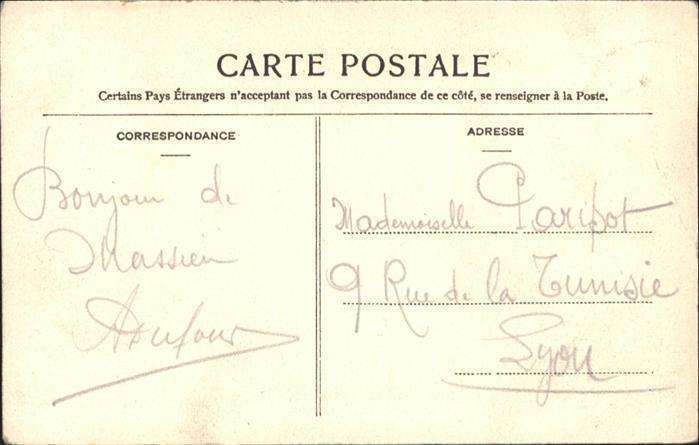 CARTE POSTALE
Certains Pays Étrangers n'acceptant pas la Correspondance de ce côté, se renseigner à la Poste.
CORRESPONDANCE
Bonjour de
Massieu
ADufour
ADRESSE
Mademoiselle Paripot
9 Rue de la Tunisie
Lyon